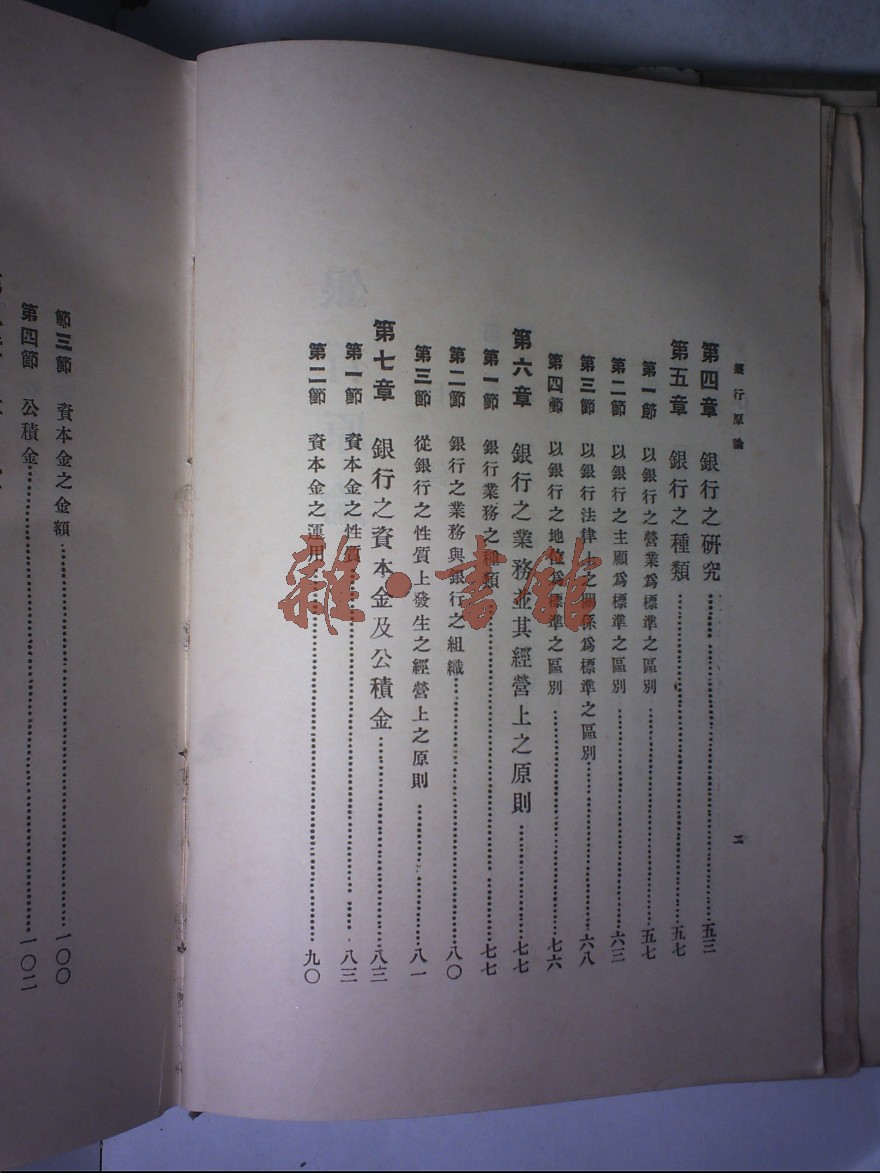 銀行原論
二
第四章 銀行之研究……五三
第五章 銀行之種類……五七
第一節 以銀行之營業爲標準之區別……五七
第二節 以銀行之主顧爲標準之區別……六三
第三節 以銀行法律上之關係爲標準之區別……六八
第四節 以銀行之地位爲標準之區別……七六
第六章 銀行之業務並其經營上之原則……七七
第一節 銀行業務之種類……七七
第二節 銀行之業務與銀行之組織……八〇
第三節 從銀行之性質上發生之經營上之原則……八一
第七章 銀行之資本金及公積金……八三
第一節 資本金之性質……八三
第二節 資本金之運用……九〇
節三節 資本金之金額……一〇〇
第四節 公積金……一〇二
雜·書館